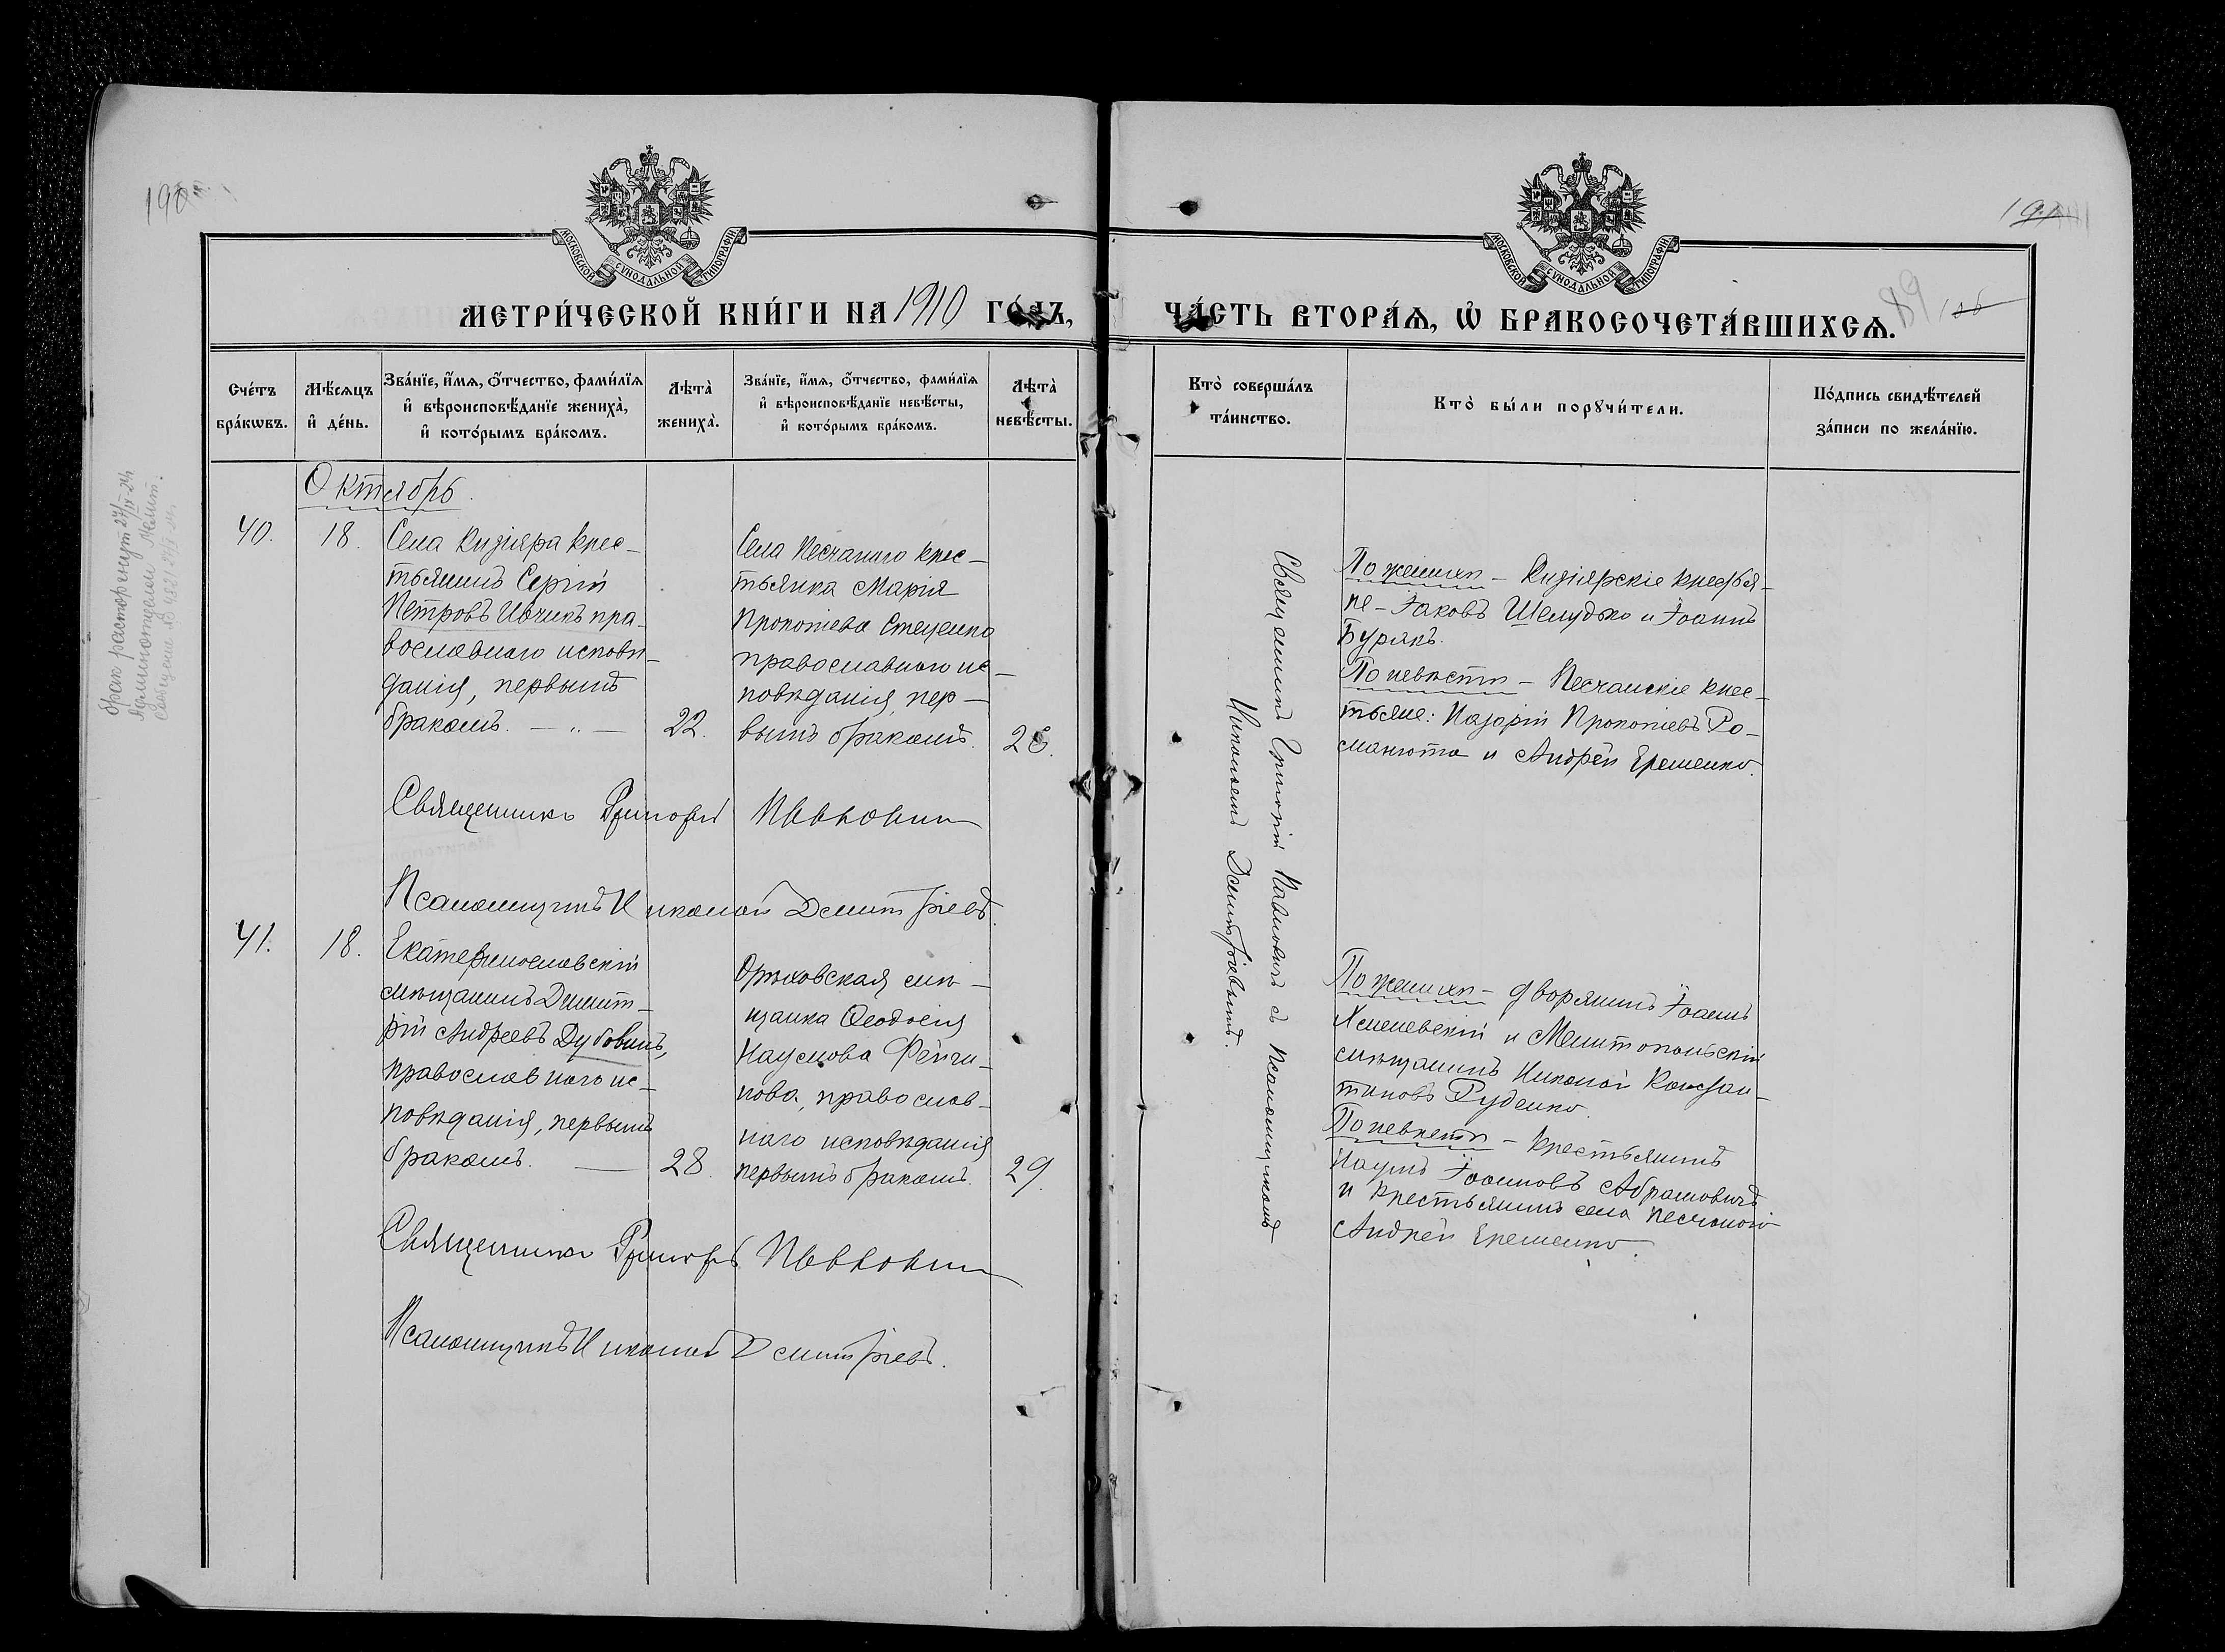 190
МОСКОВСКОЙ СѴНОДАЛЬНОЙ ТИПОГРАФІИ
МЕТРИ́ЧЕСКОЙ КНИ́ГИ НА 1910 ГО́ДЪ,
Сче́тъ бра́кѡвъ.
Мѣ́сяцъ и҆ де́нь.
Зва́нїе, и҆́мѧ, ѻ҆́тчество, фами́лїѧ
и҆ вѣроисповѣ́данїе жениха̀,
и҆ кото́рымъ бра́комъ.
Лѣта̀ жениха̀.
Зва́нїе, и҆́мѧ, ѻ҆́тчество, фами́лїѧ
и҆ вѣроисповѣ́данїе невѣ́сты,
и҆ кото́рымъ бра́комъ.
Лѣта̀ невѣ́сты.
Октябрь.
40.
18.
Села Кизіяра крес-
тьянинъ Сергій
Петровъ Ивчикъ пра-
вославнаго исповѣ-
данія, первымъ
бракомъ. — „ —
22.
Села Песчанаго крес-
тьянка Марія
Прокопіева Стеценко
православнаго ис-
повѣданія, пер-
вымъ бракомъ.
Священникъ Григорій Павловичъ
Псаломщикъ Николай Димитріевъ.
41.
18.
Екатеринославскій
мѣщанинъ Димит-
рій Андреевъ Дубовикъ,
православнаго ис-
повѣданія, первымъ
бракомъ. —
28.
Орѣховская мѣ-
щанка Ѳеодосія
Наумова
православ-
наго исповѣданія
первымъ бракомъ.
29.
Священникъ Григорій Павловичъ
Псаломщикъ Николай Димитріевъ.
бракъ расторгнут 27/IX-24
МОСКОВСКОЙ СѴНОДАЛЬНОЙ ТИПОГРАФІИ
89
ЧА́СТЬ ВТОРА́Ѧ, Ѡ҆ БРАКОСОЧЕТА́ВШИХСѦ.
Кто̀ соверша́лъ та́инство.
Кто̀ бы́ли порꙋчи́тели.
По́дпись свидѣ́телей
за́писи по жела́нїю.
Священникъ Григорій Павловичъ съ псаломщикомъ
Николаемъ Димитріевымъ.
По женихѣ — Кизіярскіе крестья-
не — Іаковъ Шелудько и Іоаннъ
Бурякъ.
По невѣстѣ — Песчанскіе крес-
тьяне: Назарій Прокопіевъ Ро-
манюта и Андрей Ерешенко.
По женихѣ — дворянинъ Іоаннъ
Хмелевскій и Мелитопольскій
мѣщанинъ Николай Констан-
тиновъ Руденко.
По невѣстѣ — крестьянинъ
Наумъ Іоанновъ Абрамовичъ
и крестьянинъ села Песчаного
Андрей Ерешенко.